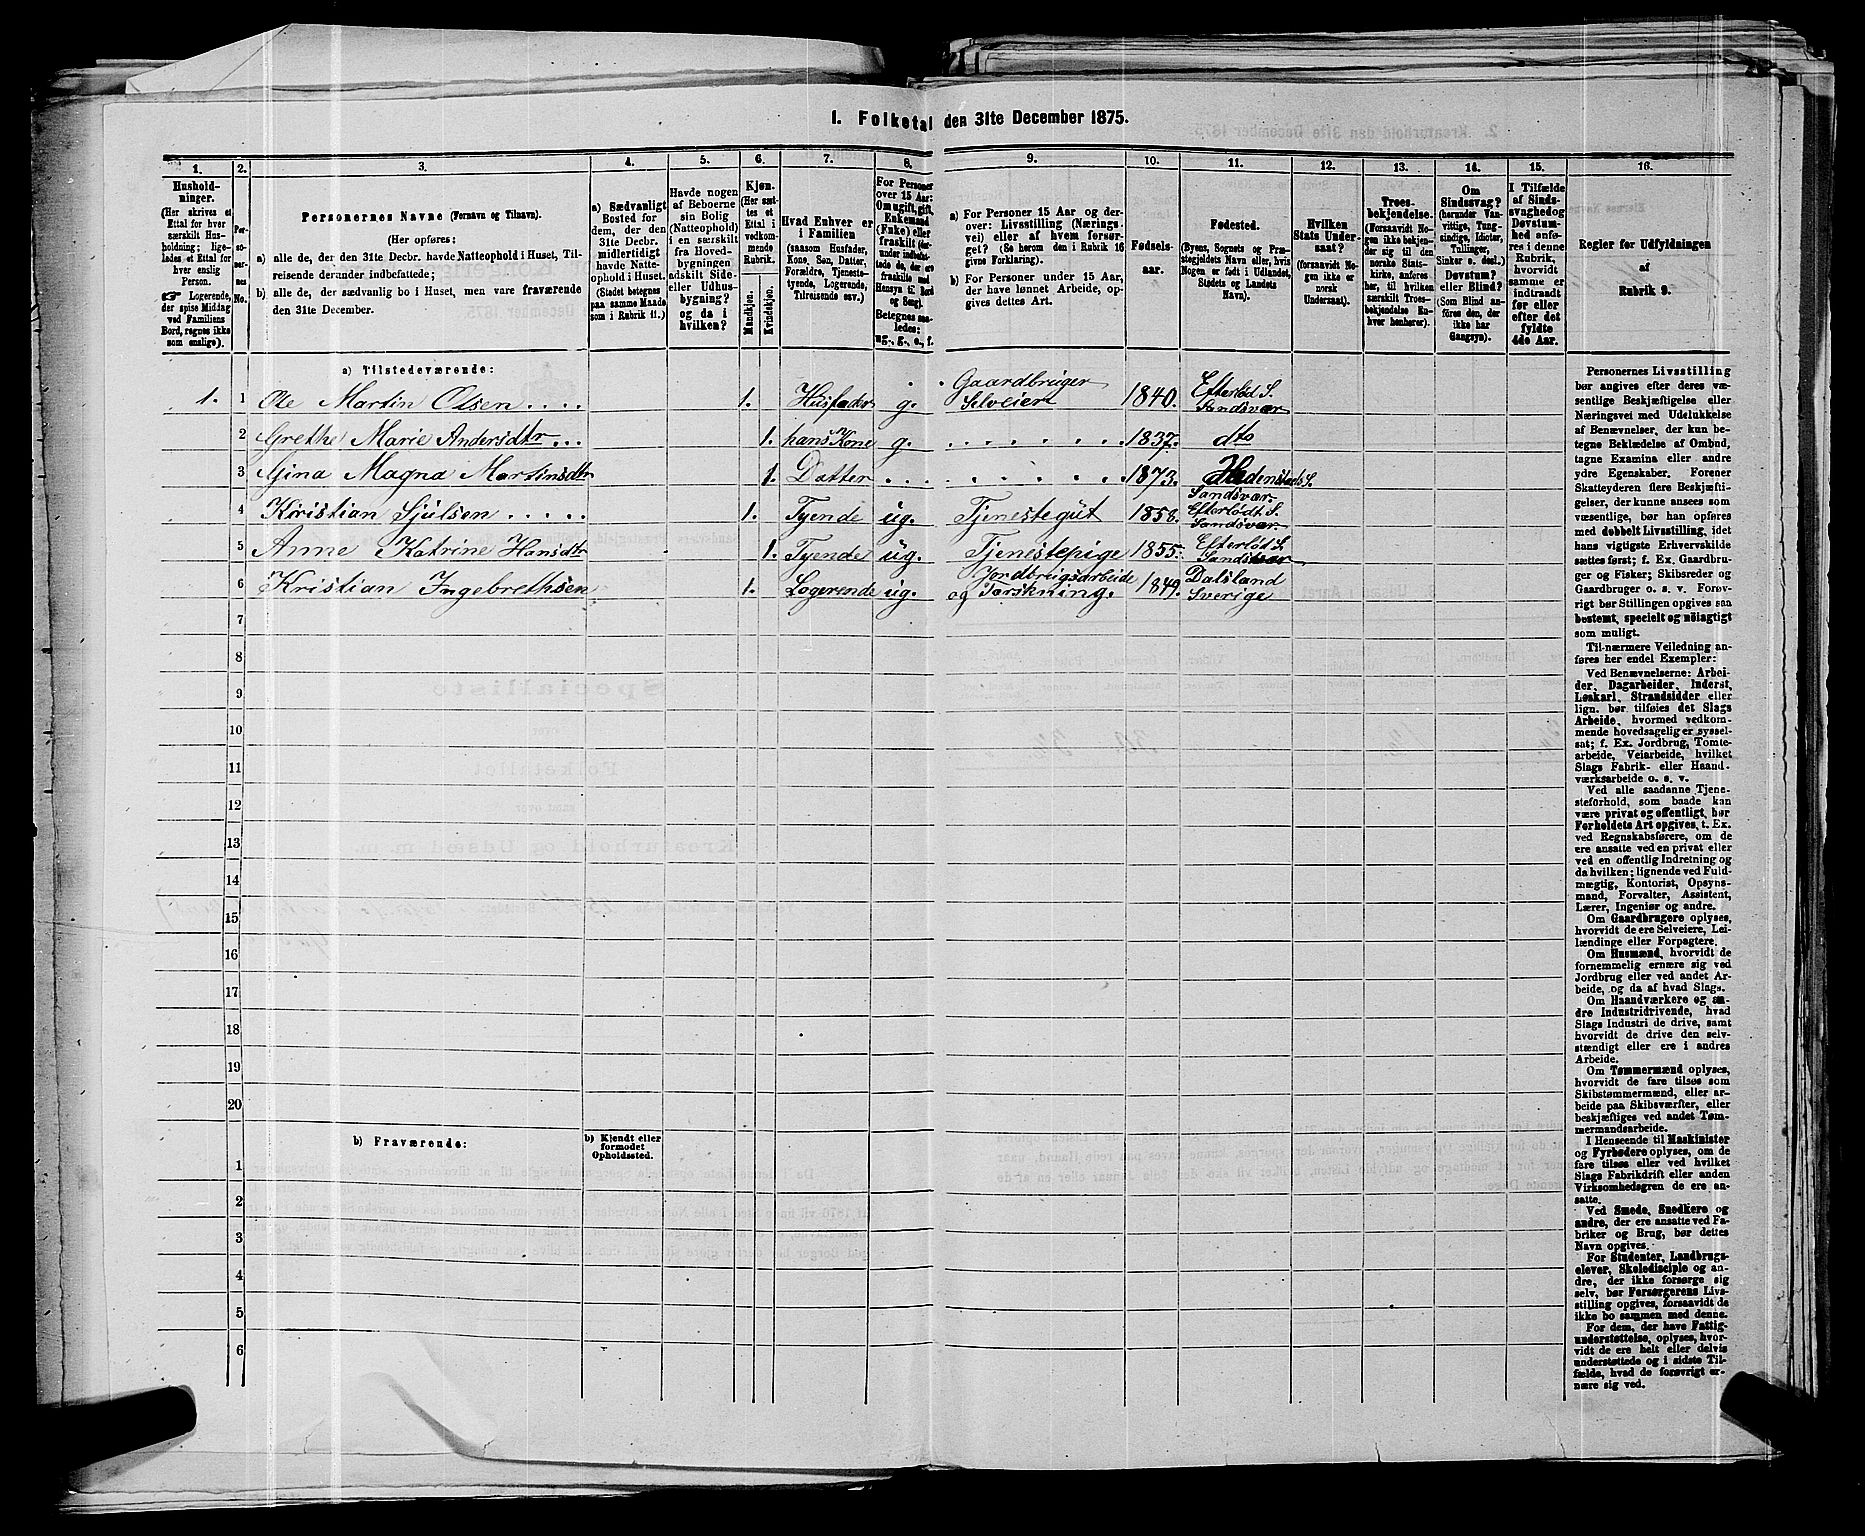 1. Folketal den 31te December 1875.
1.
Hushold-
ninger.
(Her skrives et
Ettal for hver
særskilt Hus-
holdning; lige-
ledes et Ettal for
hver enslig
Person.
Logerende,
der spise Middag
ved Familiens
Bord, regnes ikke
som enslige).
2.
Per-
so-
ner-
nes
No.
3.
Personernes Navne (Fornavn og Tilnavn).
(Her opføres:
a) alle de, der den 31te Decbr. havde Natteophold i Huset, Til-
reisende derunder indbefattede;
b) alle de, der sædvanlig bo i Huset, men vare fraværende
den 31te December.
4.
a) Sædvanligt
Bosted for
dem, der den
31te Decbr.
midlertidigt
havde Natte-
ophold i Huset.
(Stedet betegnes
paa samme Maade
som i Rubrik 11.)
5.
Havde nogen
af Beboerne
sin Bolig
(Natteophold)
i en særskilt
fra Hoved-
bygningen
adskilt Side-
eller Udhus-
bygning?
og da i
hvilken?
6.
Kjøn.
(Her sæt-
tes et
Ettal i
vedkom-
mende
Rubrik.
Mandkjøn.
Kvindekjøn.
7.
Hvad Enhver er
i Familien
(saasom Husfader,
Kone, Søn, Datter,
Forældre, Tjeneste-
tyende, Logerende,
Tilreisende osv.)
8.
For Personer
over 15 Aar:
Om ugift, gift,
Enkemand
(Enke) eller
fraskilt
Betegnes saa-
ledes:
ug., g., e., f.
9.
a) For Personer 15 Aar og der-
over: Livsstilling (Nærings-
vei) eller af hvem forsør-
get? (Se herom den i Rubrik 16
givne Forklaring).
b) For Personer under 15 Aar,
der have lønnet Arbeide, op-
gives dettes Art.
10.
Fødsels-
aar.
11.
Fødested.
(Byens, Sognets og Præ-
stegjeldets Navn eller, hvis
Nogen er født i Udlandet,
Stedets og Landets
Navn).
12.
Hvilken
Stats Under-
saat?
(forsaavidt No-
gen ikke er
norsk
Undersaat).
13.
Troes-
bekjendelse.
(Forsaavidt No-
gen ikke bekjen-
der sig til den
norske Stats-
kirke, anføres
her, til hvilken
særskilt Troes-
bekjendelse En-
hver henhører).
14.
Om
Sindssvag?
(herunder Van-
vittige, Tung-
sindige, Idioter,
Tullinger,
Sinker o. desl.)
Døvstum?
eller Blind?
(Som Blind an-
føres den, der
ikke har
Gangsyn).
15.
I Tilfælde
af Sinds-
svaghed og
Døvstum-
hed anfø-
res i denne
Rubrik,
hvorvidt
samme er
indtraadt
før eller
efter det
fyldte
4de Aar.
16.
Regler for Udfyldningen
af
Rubrik 9.
a) Tilstedeværende:
1. 1 Ole Martin Olsen .... 1. Husfader g. Gaardbruger Selveier 1840. Efterlød S. Sandsvær
2 Grethe Marie Andersdtr ... 1. hans Kone g. ....... 1837. dto
3 Gina Magna Martinsdtr 1. Datter ... ....... 1873. Hedenstads S. Sandsvær
4 Kristian Sjulsen ..... 1. Tyende ug. Tjenestegut 1858. Efterlødt S. Sandsvær
5 Anne Katrine Hansdtr 1. Tyende ug. Tjenestepige 1855. Efterløt S. Sandsvær
6 Kristian Ingebrethsen 1. Logerende ug. Jordbrugsarbeide og Tørskning. 1849. Dalsland Sverige
7
8
9
10
11
12
13
14
15
16
17
18
19
20
b) Fraværende:
b) Kjendt eller
formodet
Opholdssted.
1
2
3
4
5
6
Personernes Livsstilling
bør angives efter deres væ-
sentlige Beskjæftigelse eller
Næringsvei med Udelukkelse
af Benævnelser, der kun be-
tegne Beklædelse af Ombud,
tagne Examina eller andre
ydre Egenskaber. Forener
Skatteyderen flere Beskjæfti-
gelser, der kunne ansees som
væsentlige, bør han opføres
med dobbelt Livsstilling, idet
hans vigtigste Erhvervskilde
sættes først; f. Ex. Gaardbru-
ger og Fisker; Skibsreder og
Gaardbruger o. s. v. Forøv-
rigt bør Stillingen opgives saa
bestemt, specielt og nøiagtigt
som muligt.
Til nærmere Veiledning an-
føres her endel Exempler:
Ved Benævnelserne: Arbei-
der, Dagarbeider, Inderst,
Løskarl, Strandsidder eller
lign. bør tilføies det Slags
Arbeide, hvormed vedkom-
mende hovedsagelig er syssel-
sat; f. Ex. Jordbrug, Tomte-
arbeide, Veiarbeide, hvilket
Slags Fabrik- eller Haand-
værksarbeide o. s. v.
Ved alle saadanne Tjene-
steforhold, som baade kan
være privat og offentligt, bør
Forholdets Art opgives, t. Ex.
ved Regnskabsførere, om de
ere ansatte ved en privat eller
ved en offentlig Indretning og
da hvilken; lignende ved Fuld-
mægtig, Kontorist, Opsyns-
mand, Forvalter, Assistent,
Lærer, Ingeniør og andre.
Om Gaardbrugere oplyses,
hvorvidt de ere Selveiere, Lei-
lændinge eller Forpagtere.
Om Husmænd, hvorvidt de
fornemmelig ernære sig ved
Jordbrug eller ved andet Ar-
beide, og da af hvad Slags.
Om Haandværkere og an-
dre Industridrivende, hvad
Slags Industri de drive, samt
hvorvidt de drive den selv-
stændigt eller ere i andres
Arbeide.
Om Tømmermænd oplyses,
hvorvidt de fare tilsøs som
Skibstømmermænd, eller ar-
beide paa Skibsværfter, eller
beskjæftiges ved andet Tøm-
mermandsarbeide.
I Henseende til Maskinister
og Fyrbødere oplyses, om de
fare tilsøs eller ved hvilket
Slags Fabrikdrift eller anden
Virksomhedsgren de ere an-
satte.
Ved Smede, Snedkere og
andre, der ere ansatte ved Fa-
briker og Brug, bør dettes
Navn opgives.
For Studenter, Landbrugs-
elever, Skoledisciple og an-
dre, der ikke forsørge sig
selv, bør Forsørgerens Livs-
stilling opgives, forsaavidt de
ikke bo sammen med denne.
For dem, der have Fattig-
understøttelse, oplyses, hvor-
vidt de ere helt eller delvis
understøttede og i sidste Til-
fælde, hvad de forøvrigt er-
nære sig ved.